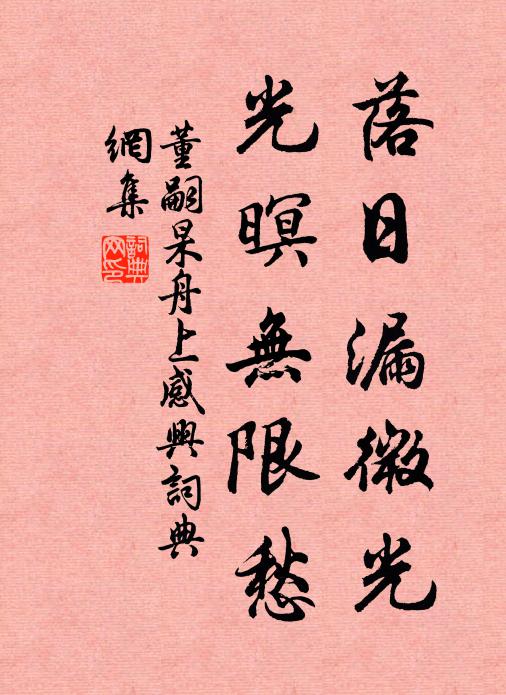 落日漏微光
光暝無限愁
董嗣杲舟上感興詞典
網集
詞典
网印